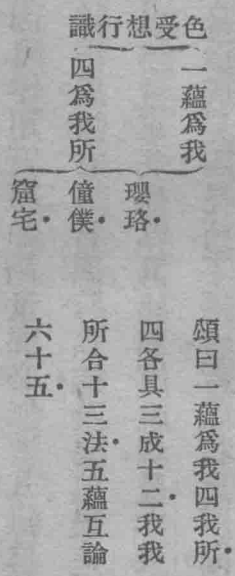 色受想行識
一蘊爲我
四爲我所
瓔珞・
僮僕・
窟宅・
頌曰一蘊爲我四我所・
四各具三成十二・我我
所合十三法・五蘊互論
六十五・